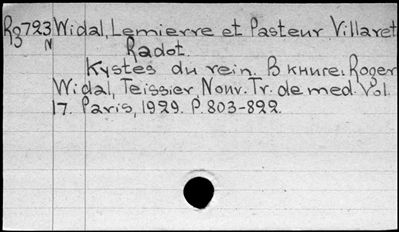 Rg723 Widal, Lemierre et Pasteur Villaret
N Radot.
Kystes du rein. В книге: Roger
Widal, Teissier, Nouv. Tr. de med. Vol.
17. Paris, 1929. P. 803-822.